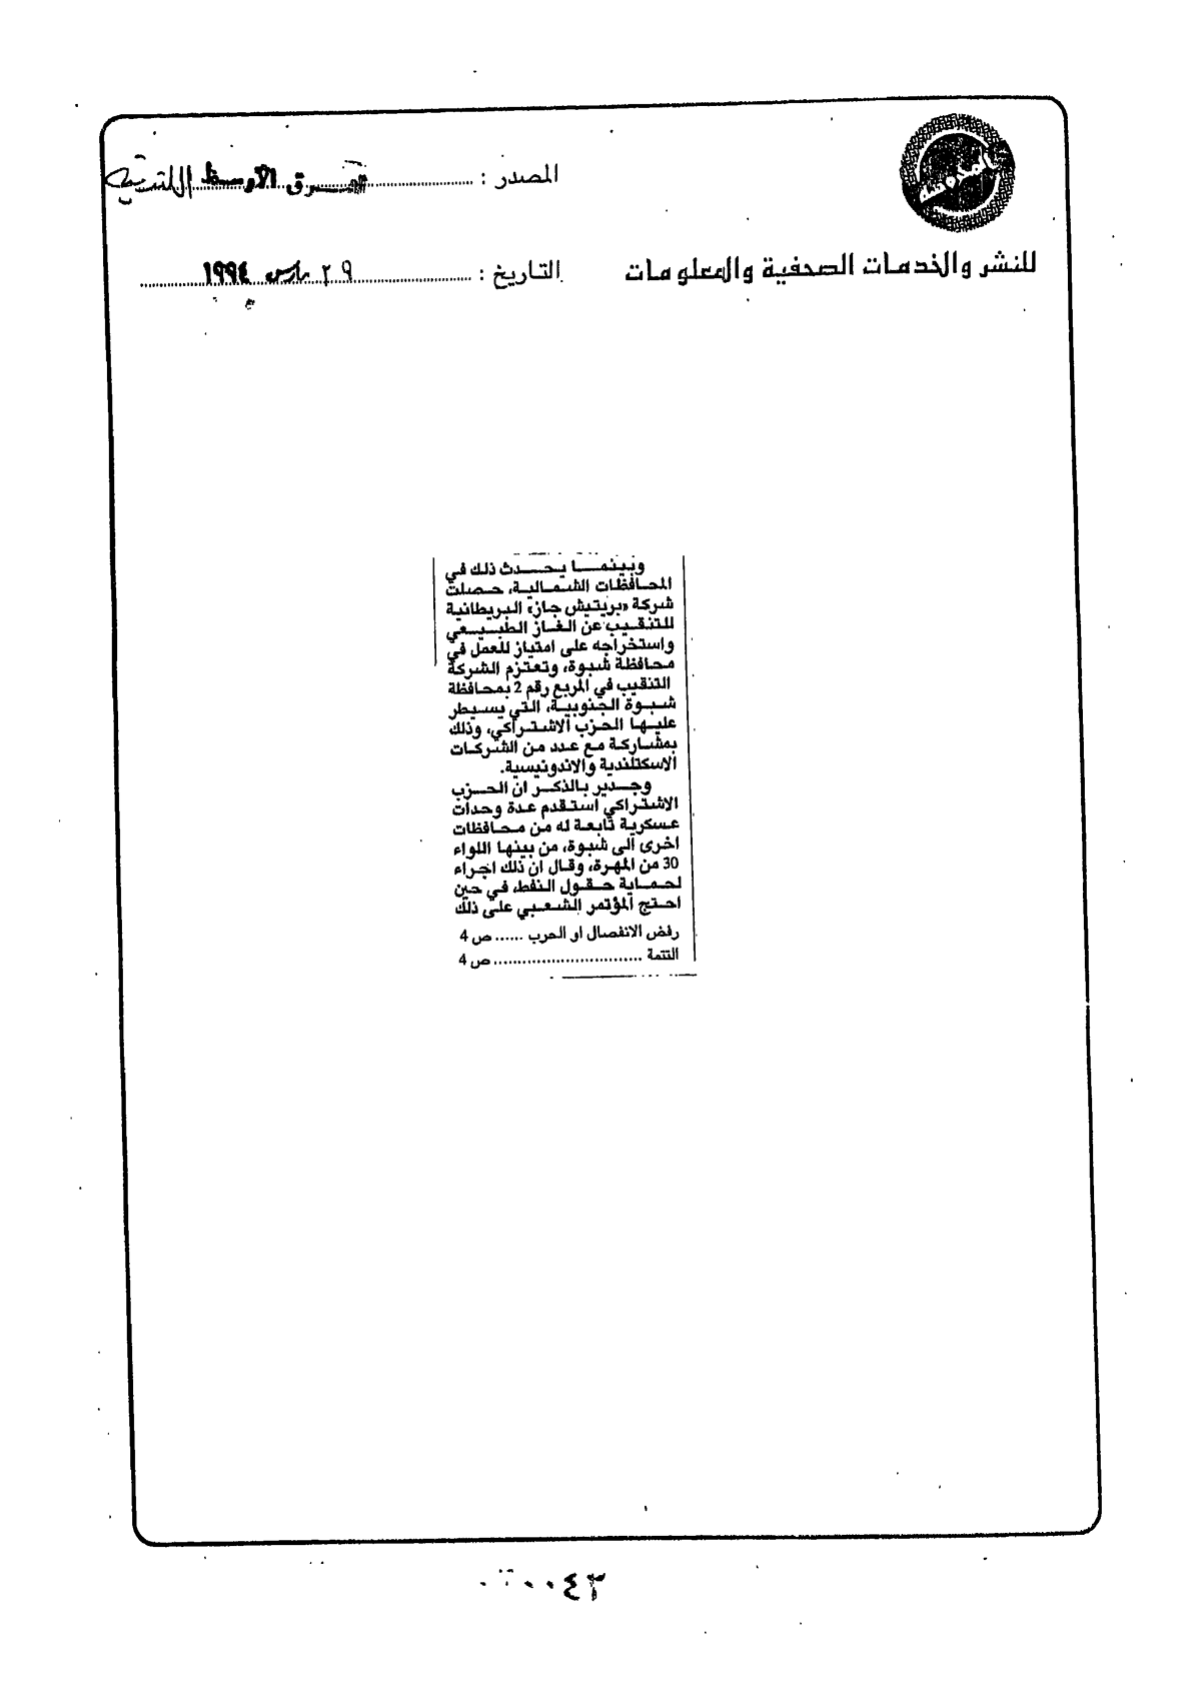 المصدر : الشرق الأوسط اللندنية
للنشر والخدمات الصحفية والمعلومات
التاريخ : ٢٩ مارس ١٩٩٤
وبينما يحدث ذلك في
المحافظات الشمالية، حصلت
شركة «بريتيش جاز» البريطانية
للتنقيب عن الغاز الطبيعي
واستخراجه على امتياز للعمل في
محافظة شبوة، وتعتزم الشركة
التنقيب في المربع رقم 2 بمحافظة
شبوة الجنوبية، التي يسيطر
عليها الحزب الاشتراكي، وذلك
بمشاركة مع عدد من الشركات
الاسكتلندية والاندونيسية.
وجدير بالذكر ان الحزب
الاشتراكي استقدم عدة وحدات
عسكرية تابعة له من محافظات
اخرى الى شبوة، من بينها اللواء
30 من المهرة، وقال ان ذلك اجراء
لحماية حقول النفط، في حين
احتج المؤتمر الشعبي على ذلك
رفض الانفصال او الحرب ...... ص 4
التتمة .............................. ص 4